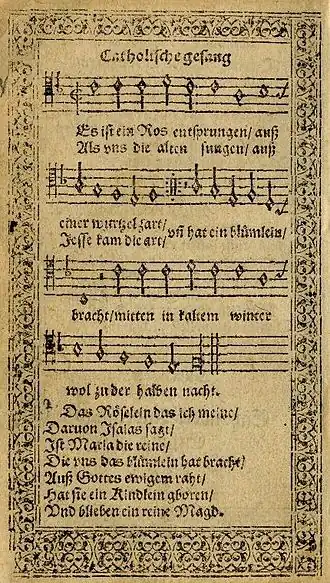 Catholische gesang
Es ist ein Ros entsprungen/ auß
Als vns die alten sungen/ auß
einer wurtzel zart/
Jesse kam die art/
vñ hat ein blümlein/
bracht/mitten in kaltem winter
wol zu der halben nacht.
2. Das Röselein das ich meine/
Daruon Isaias sagt/
Ist Maria die reine/
Die vns das blümlein hat bracht/
Auß Gottes ewigem raht/
Hat sie ein Kindlein gboren/
Vnd blieben ein reine Magd.